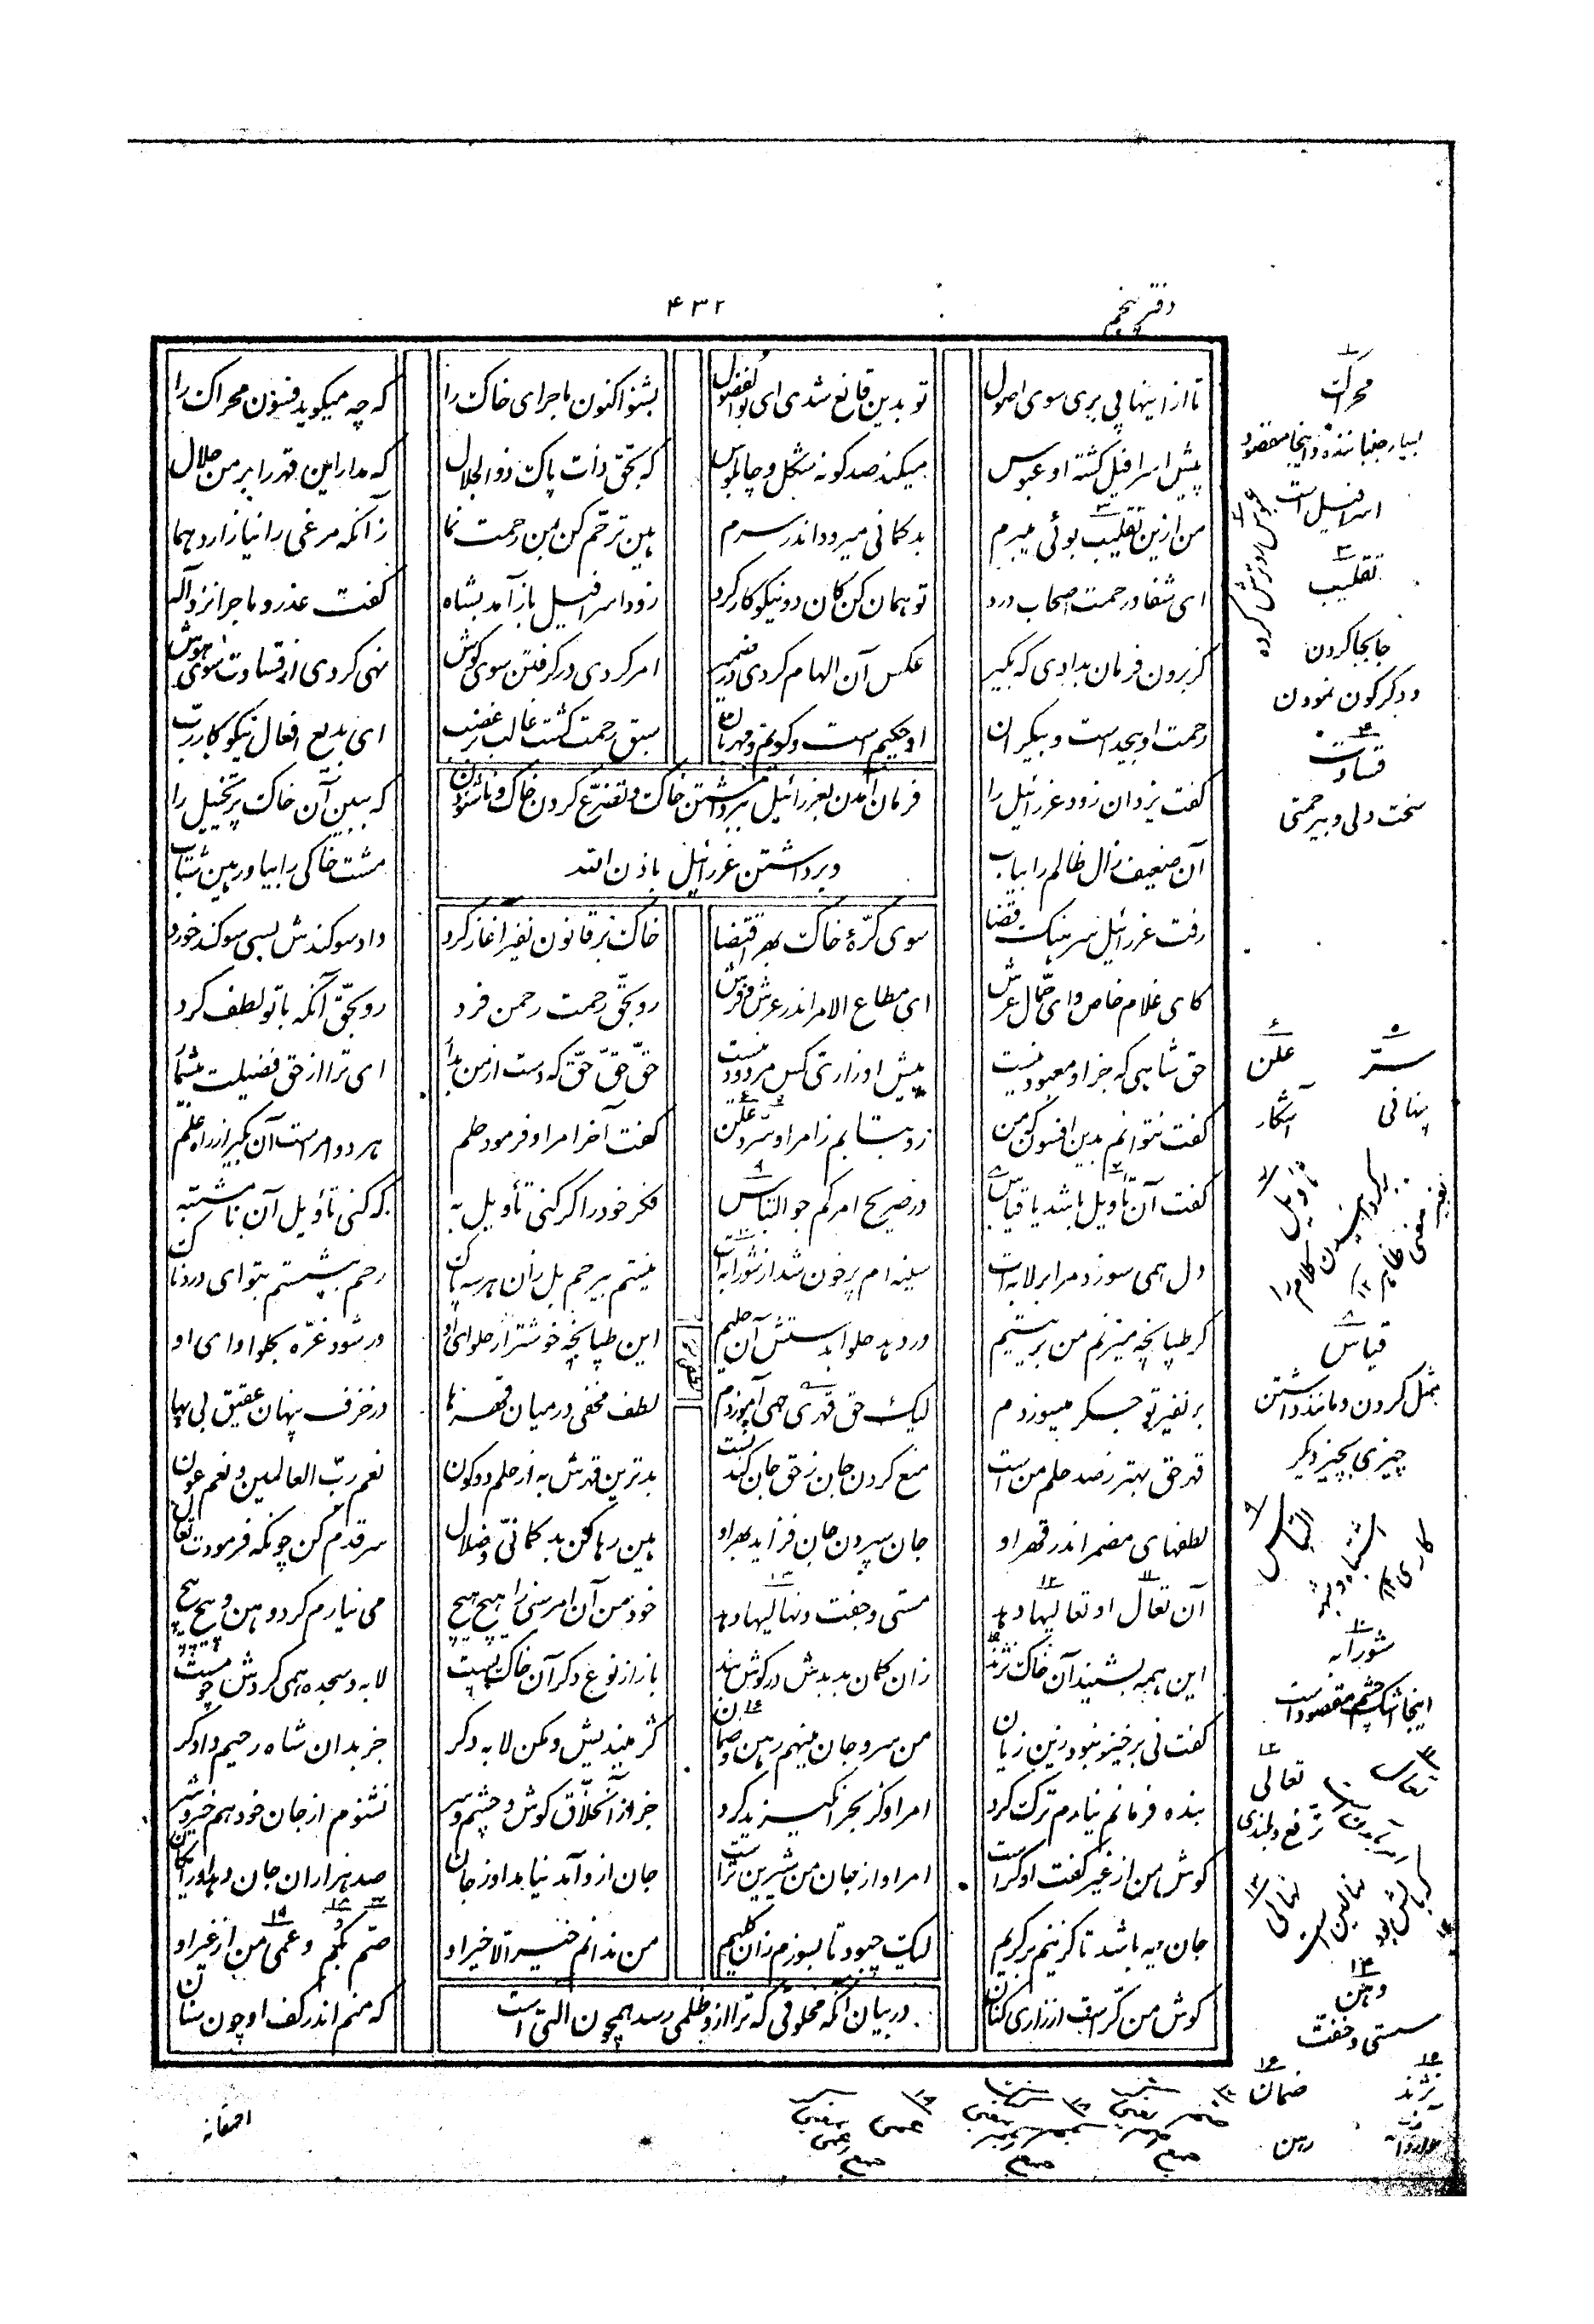 دفتر پنجم
۴۳۲
تا از اینها پی بری سوی اصول تو بدین قانع شدی ای بوالفضول بشنو اکنون ماجرای خاک را که چه میکوید فسون محراک را
پیش اسرافیل کشته او عبوس میکند صد کونه شکل و چاپلوس که بحق ذات پاک ذوالجلال که مدار این قهر را بر من حلال
من ازین تقلیب بوئی میبرم بدکمانی میرود اندر سرم هین ترحّم کن من رحمت نما زانکه مرغی را نیازارد هما
ای شفا و رحمت اصحاب درد تو همان کن کان دو نیکوکار کرد زود اسرافیل باز آمد بشاه کفت عذر و ماجرا نزد آله
کز برون فرمان بدادی که بکیر عکس آن الهام کردی در ضمیر امر کردی در کرفتن سوی کوش نهی کردی از قساوت سوی هوش
رحمت او بیحداست و بیکران او حکیم است و کریم و مهربان سبق رحمت کشت غالب بر غضب ای بدیع افعال نیکو کار ربّ
فرمان آمدن بعزرائیل ببرداشتن خاک و تضرّع کردن خاک و ناشنودن
و برداشتن عزرائیل باذن الله
کفت یزدان زود عزرائیل را که ببین آن خاک پر تخییل را
آن ضعیف زال ظالم را بیاب مشت خاکی را بیاور هین شتاب
رفت عزرائیل سرهنک قضا سوی کرّهٔ خاک بهر اقتضا خاک بر قانون نفیر آغاز کرد داد سوکندش بسی سوکند خورد
کای غلام خاص و ای حمّال عرش ای مطاع الامر اندر عرش و فرش رو بحقّ رحمت رحمن فرد رو بحقّ آنکه با تو لطف کرد
حق شاهی که جز او معبود نیست پیش او زاری کس مردود نیست حقّ حقّ حقّ که دست از من بدار ای ترا از حق فضیلت بیشمار
کفت نتوانم بدین افسون که من رو بتابم ز امر او سرّ و علن کفت آخر امر او فرمود حلم هر دو امر است آن بکیر از راه علم
کفت آن تأویل باشد یا قیاس در صریح امر کم جو التباس فکر خود را کر کنی تأویل به که کنی تأویل آن نا مشتبه
دل همی سوزد مرا بر لابه ات سینه ام پر خون شد از شورابه ات نیستم بیرحم بل زان هر سه پاک رحم بیشستم بتو ای دردناک
کر طپانچه میزنم من بر یتیم ور دهد حلوا بدستش آن حلیم این طپانچه خوشتر از حلوای او ور شود غرّه بحلوا وای او
بر نفیر تو جکر میسوزدم لیک حق قهری همی آموزدم لطف مخفی در میان قهرها در خزف پنهان عقیق بی بها
قهر حق بهتر ز صد حلم من است منع کردن جان ز حق جان کندنست بدترین قهرش به از حلم دو کون نعم ربّ العالمین و نعم عون
لطفهای مضمر اندر قهر او جان سپردن جان فزاید بهر او هین رها کن بدکمانی و ضلال سر قدم کن چونکه فرمودت تعال
آن تعال او تعالیها دهد مستی و جفت و نهالیها دهد خود من آن امر سنی را هیچ هیچ می نیارم کرد وهن و پیچ پیچ
این همه بشنید آن خاک نژند زان کمان بد بدش در کوش بند باز از نوع دکر آن خاک پست لابه و سجده همی کردش چو مست
کفت نی برخیز نبود زین زیان من سر و جان مینهم رهن و ضمان کژ میندیش و مکن لابه دکر جز بدان شاه رحیم دادکر
بنده فرمانم نیارم ترک کرد امر او کز بحر انکیزید کرد جز از آن خلّاق کوش و چشم و سر نشنوم از جان خود هم خیر و شر
کوش من از غیر کفت او کراست امر او از جان من شیرین تر است جان ازو آمد نیامد او ز جان صد هزاران جان دهد او رایکان
جان چه باشد تا کزینم بر کریم کیک چبود تا بسوزم زان کلیم من ندانم خیر الّا خیر او صمّ و بکم و عمی من از غیر او
در بیان آنکه مخلوقی که ترا از و ظلمی رسد همچون آلتی است
کوش من کرّ است از زاری کنان که منم اندر کف او چون سنان
محراک
بسیار جنباننده و اینجا مقصود
اسرافیل است
عبوس روترش کرده
تقلیب
جابجا کردن
و دکرکون نمودن
قساوت
سخت دلی و بیرحمتی
سرّ
پنهانی
علن
آشکار
تأویل
قیاس
مثل کردن و مانند داشتن
چیزی بچیز دیکر
التباس
شورابه
اینجا اشک چشم مقصود است
تعالی
ترفع و بلندی
نهالی
وهن
سستی و خفت
نژند
ضمان
رهن